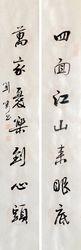 四面江山来眼底
萬家憂樂到心頭